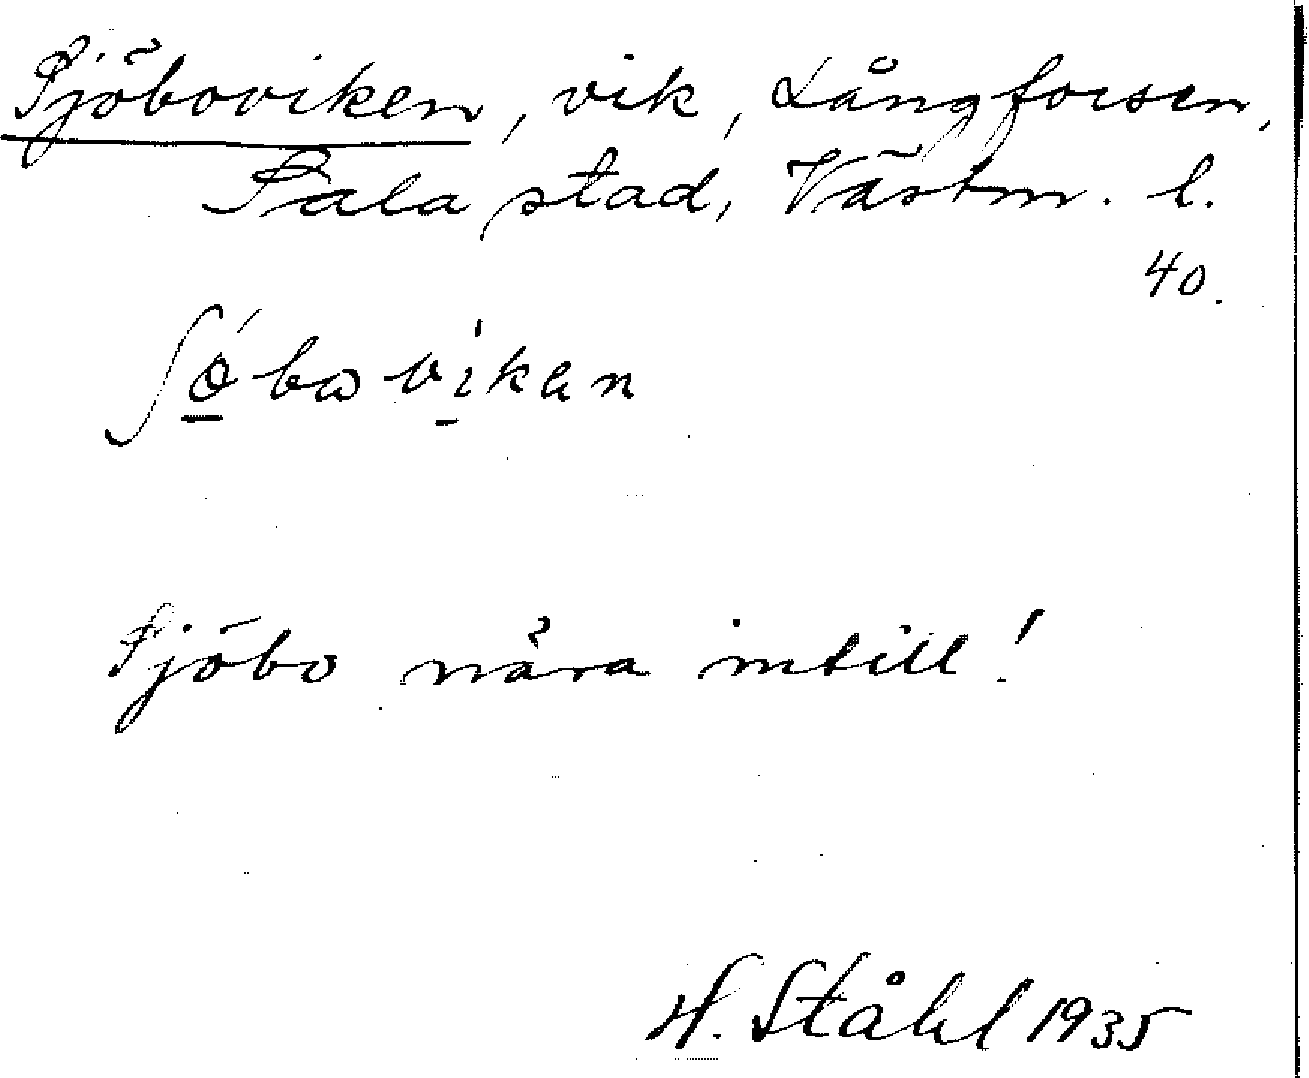 Sjöboviken, vik, Långforsen,
Sala stad, Västm. l.
40.
ʃǿ̱bωvi̱̍kən
Sjöbo nära intill!
H. Ståhl 1935